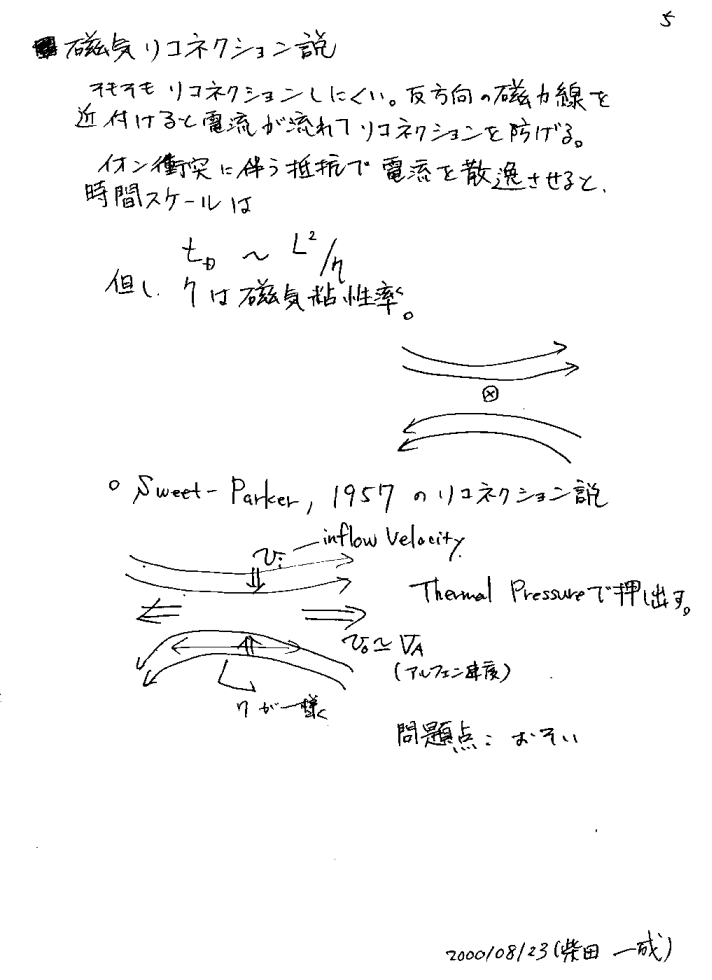 5
磁気リコネクション説
そもそもリコネクションしにくい。反方向の磁力線を
近付けると電流が流れてリコネクションを防げる。
イオン衝突に伴う抵抗で電流を散逸させると、
時間スケールは
t_D ~ L²/η
但し、ηは磁気粘性率。
⊗
○ Sweet-Parker, 1957 のリコネクション説
v_i inflow Velocity
Thermal Pressureで押し出す。
v_o ≃ V_A
(アルフェン速度)
ηが一様
問題点: おそい
2000/08/23(柴田 一成)